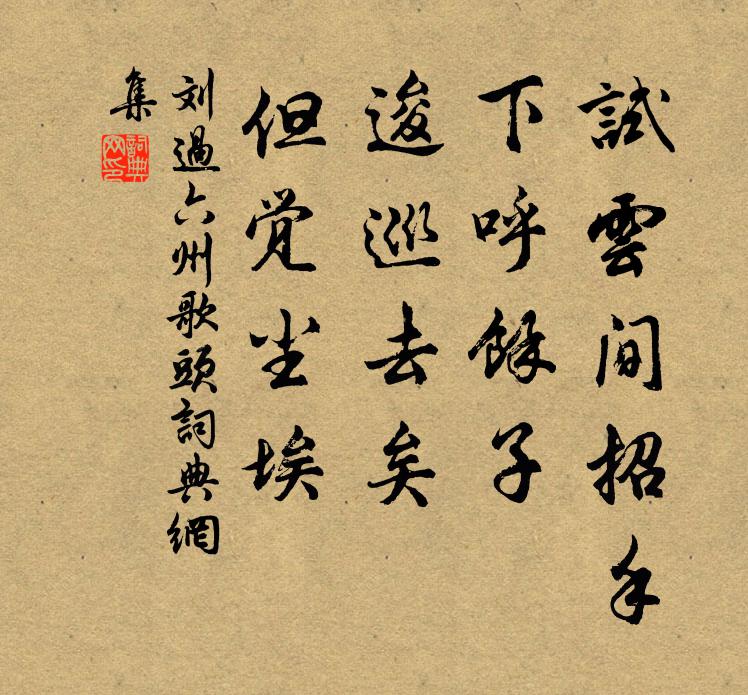 試雲間招手
下呼餘子
逡巡去矣
但觉尘埃
刘過六州歌頭詞典網
集
詞典
网印